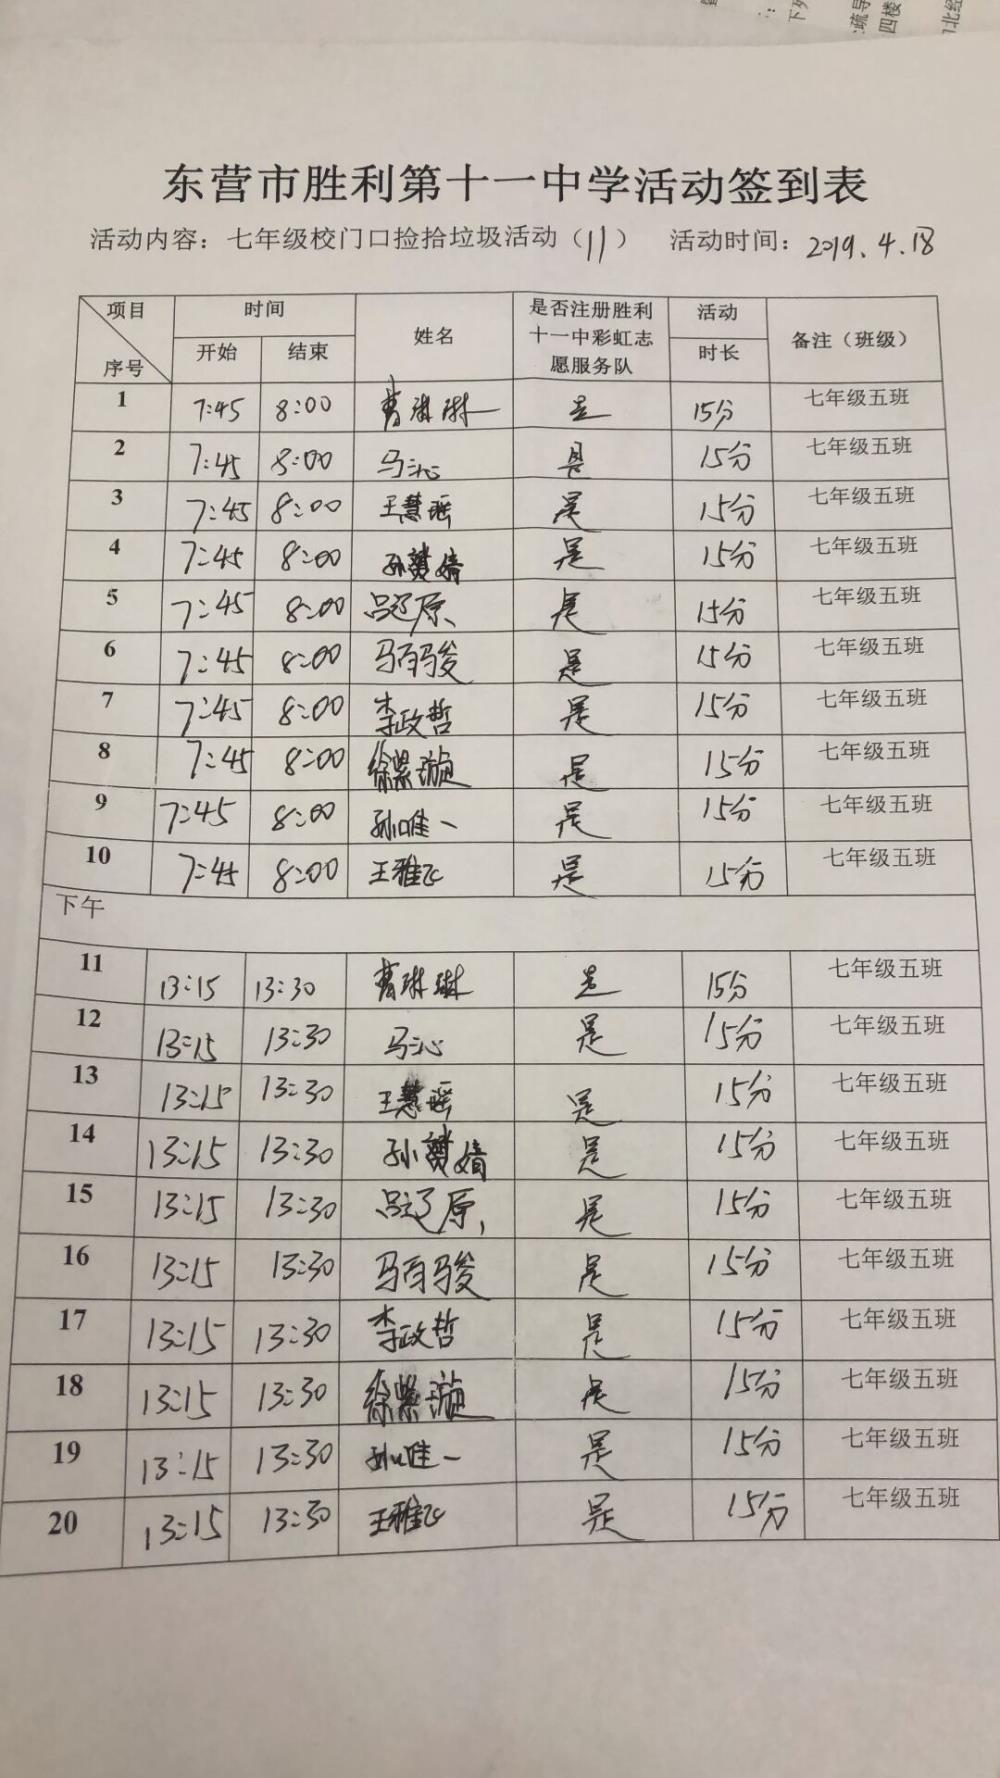 东营市胜利第十一中学活动签到表
活动内容：七年级校门口捡拾垃圾活动（11） 活动时间：2019.4.18
项目 序号 时间 开始 结束 姓名 是否注册胜利十一中彩虹志愿服务队 活动时长 备注（班级）
1 7:45 8:00 曹琳琳 是 15分 七年级五班
2 7:45 8:00 马沁 是 15分 七年级五班
3 7:45 8:00 王慧瑶 是 15分 七年级五班
4 7:45 8:00 孙婧 是 15分 七年级五班
5 7:45 8:00 吕辽原 是 15分 七年级五班
6 7:45 8:00 马百骏 是 15分 七年级五班
7 7:45 8:00 李政哲 是 15分 七年级五班
8 7:45 8:00 徐紫漩 是 15分 七年级五班
9 7:45 8:00 孙唯一 是 15分 七年级五班
10 7:45 8:00 王雅飞 是 15分 七年级五班
下午
11 13:15 13:30 曹琳琳 是 15分 七年级五班
12 13:15 13:30 马沁 是 15分 七年级五班
13 13:15 13:30 王慧瑶 是 15分 七年级五班
14 13:15 13:30 孙婧 是 15分 七年级五班
15 13:15 13:30 吕辽原 是 15分 七年级五班
16 13:15 13:30 马百骏 是 15分 七年级五班
17 13:15 13:30 李政哲 是 15分 七年级五班
18 13:15 13:30 徐紫漩 是 15分 七年级五班
19 13:15 13:30 孙唯一 是 15分 七年级五班
20 13:15 13:30 王雅飞 是 15分 七年级五班